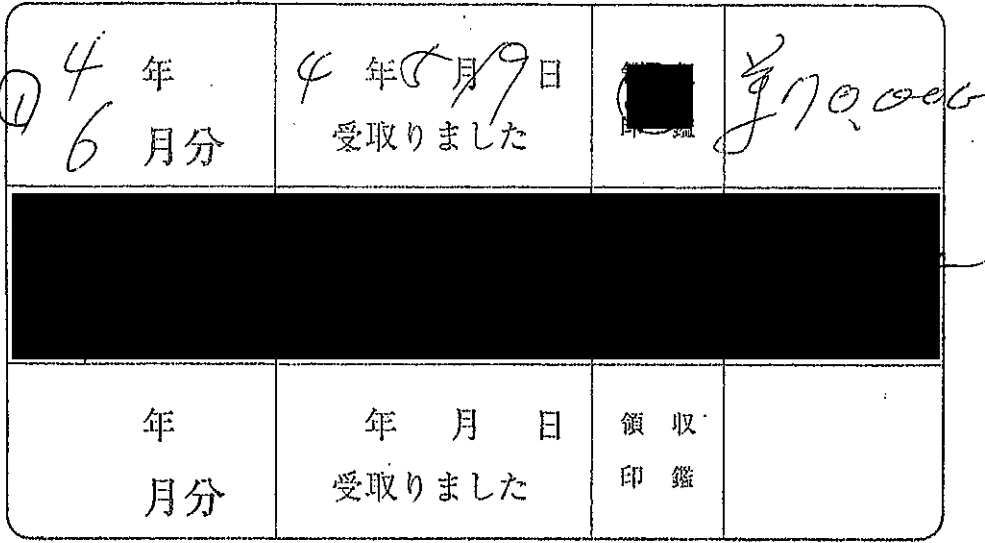 ① 4年
6月分
4年5月19日
受取りました
印鑑
¥70,000
年
月分
年 月 日
受取りました
領収
印鑑